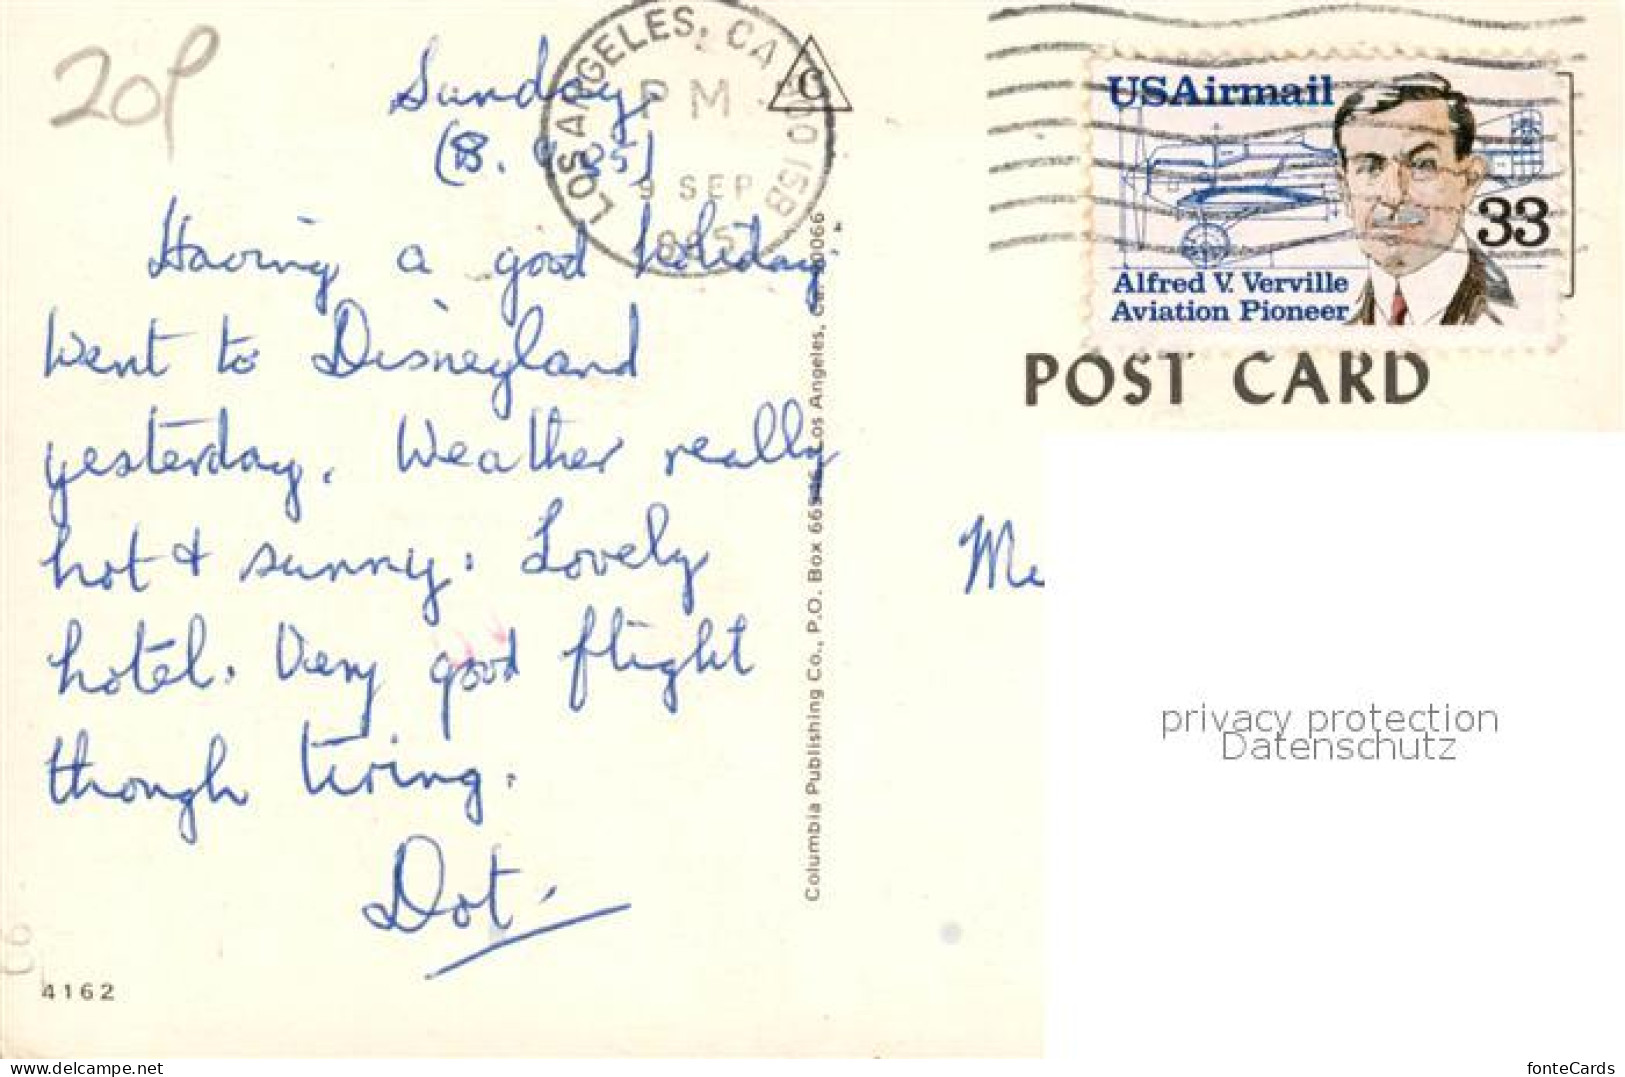 20p
Sunday
LOS ANGELES, CA
PM
9 SEP
1985
C
Having a good holiday
Went to Disneyland
yesterday. Weather really
hot & sunny. Lovely
hotel. Very good flight
though tiring.
Dot.
4162
Columbia Publishing Co., P.O. Box Los Angeles, Ca.
USAirmail
33
Alfred V. Verville
Aviation Pioneer
POST CARD
privacy protection
Datenschutz
www.delcampe.net
fonteCards